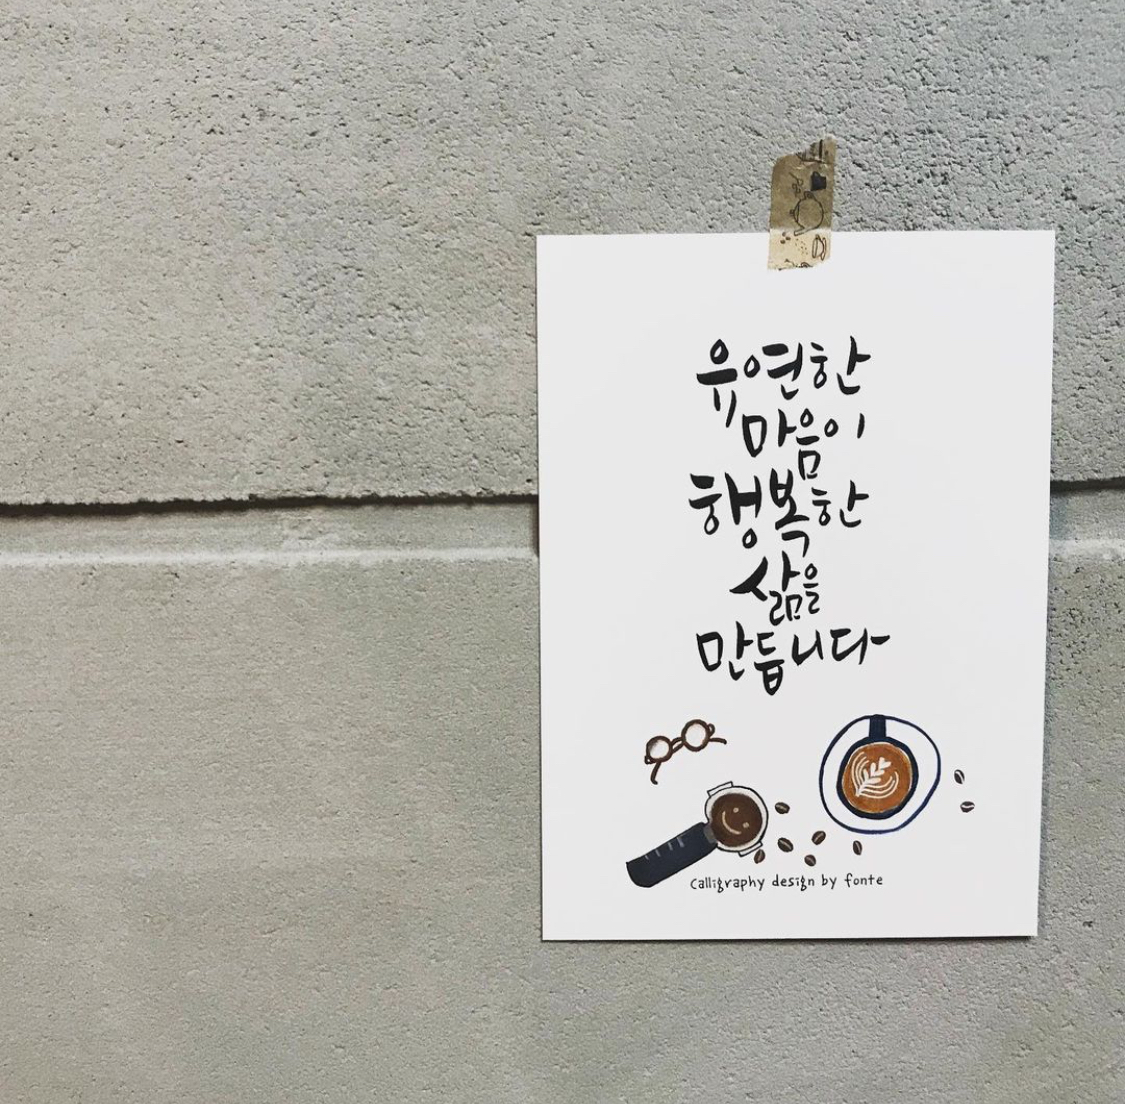 유연한
마음이
행복한
삶을
만듭니다
Calligraphy design by fonte